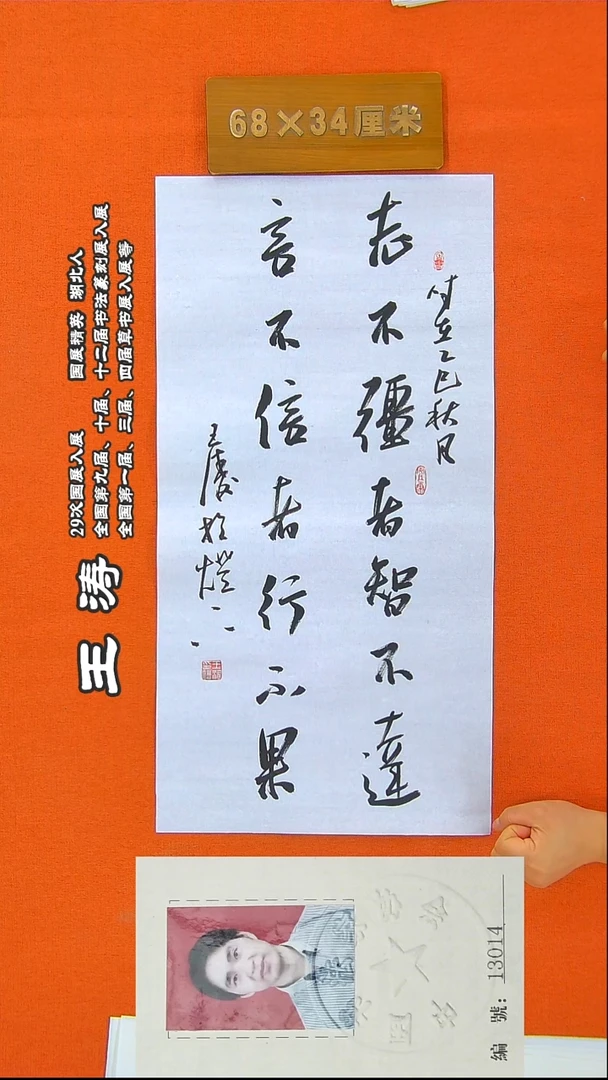 68×34厘米
时在乙巳秋月
志不彊者智不達
言不信者行不果
王涛
29次国展入展 国展精英 湖北人
全国第九届、十届、十二届书法篆刻展入展
全国第一届、三届、四届草书展入展等
編號：13014